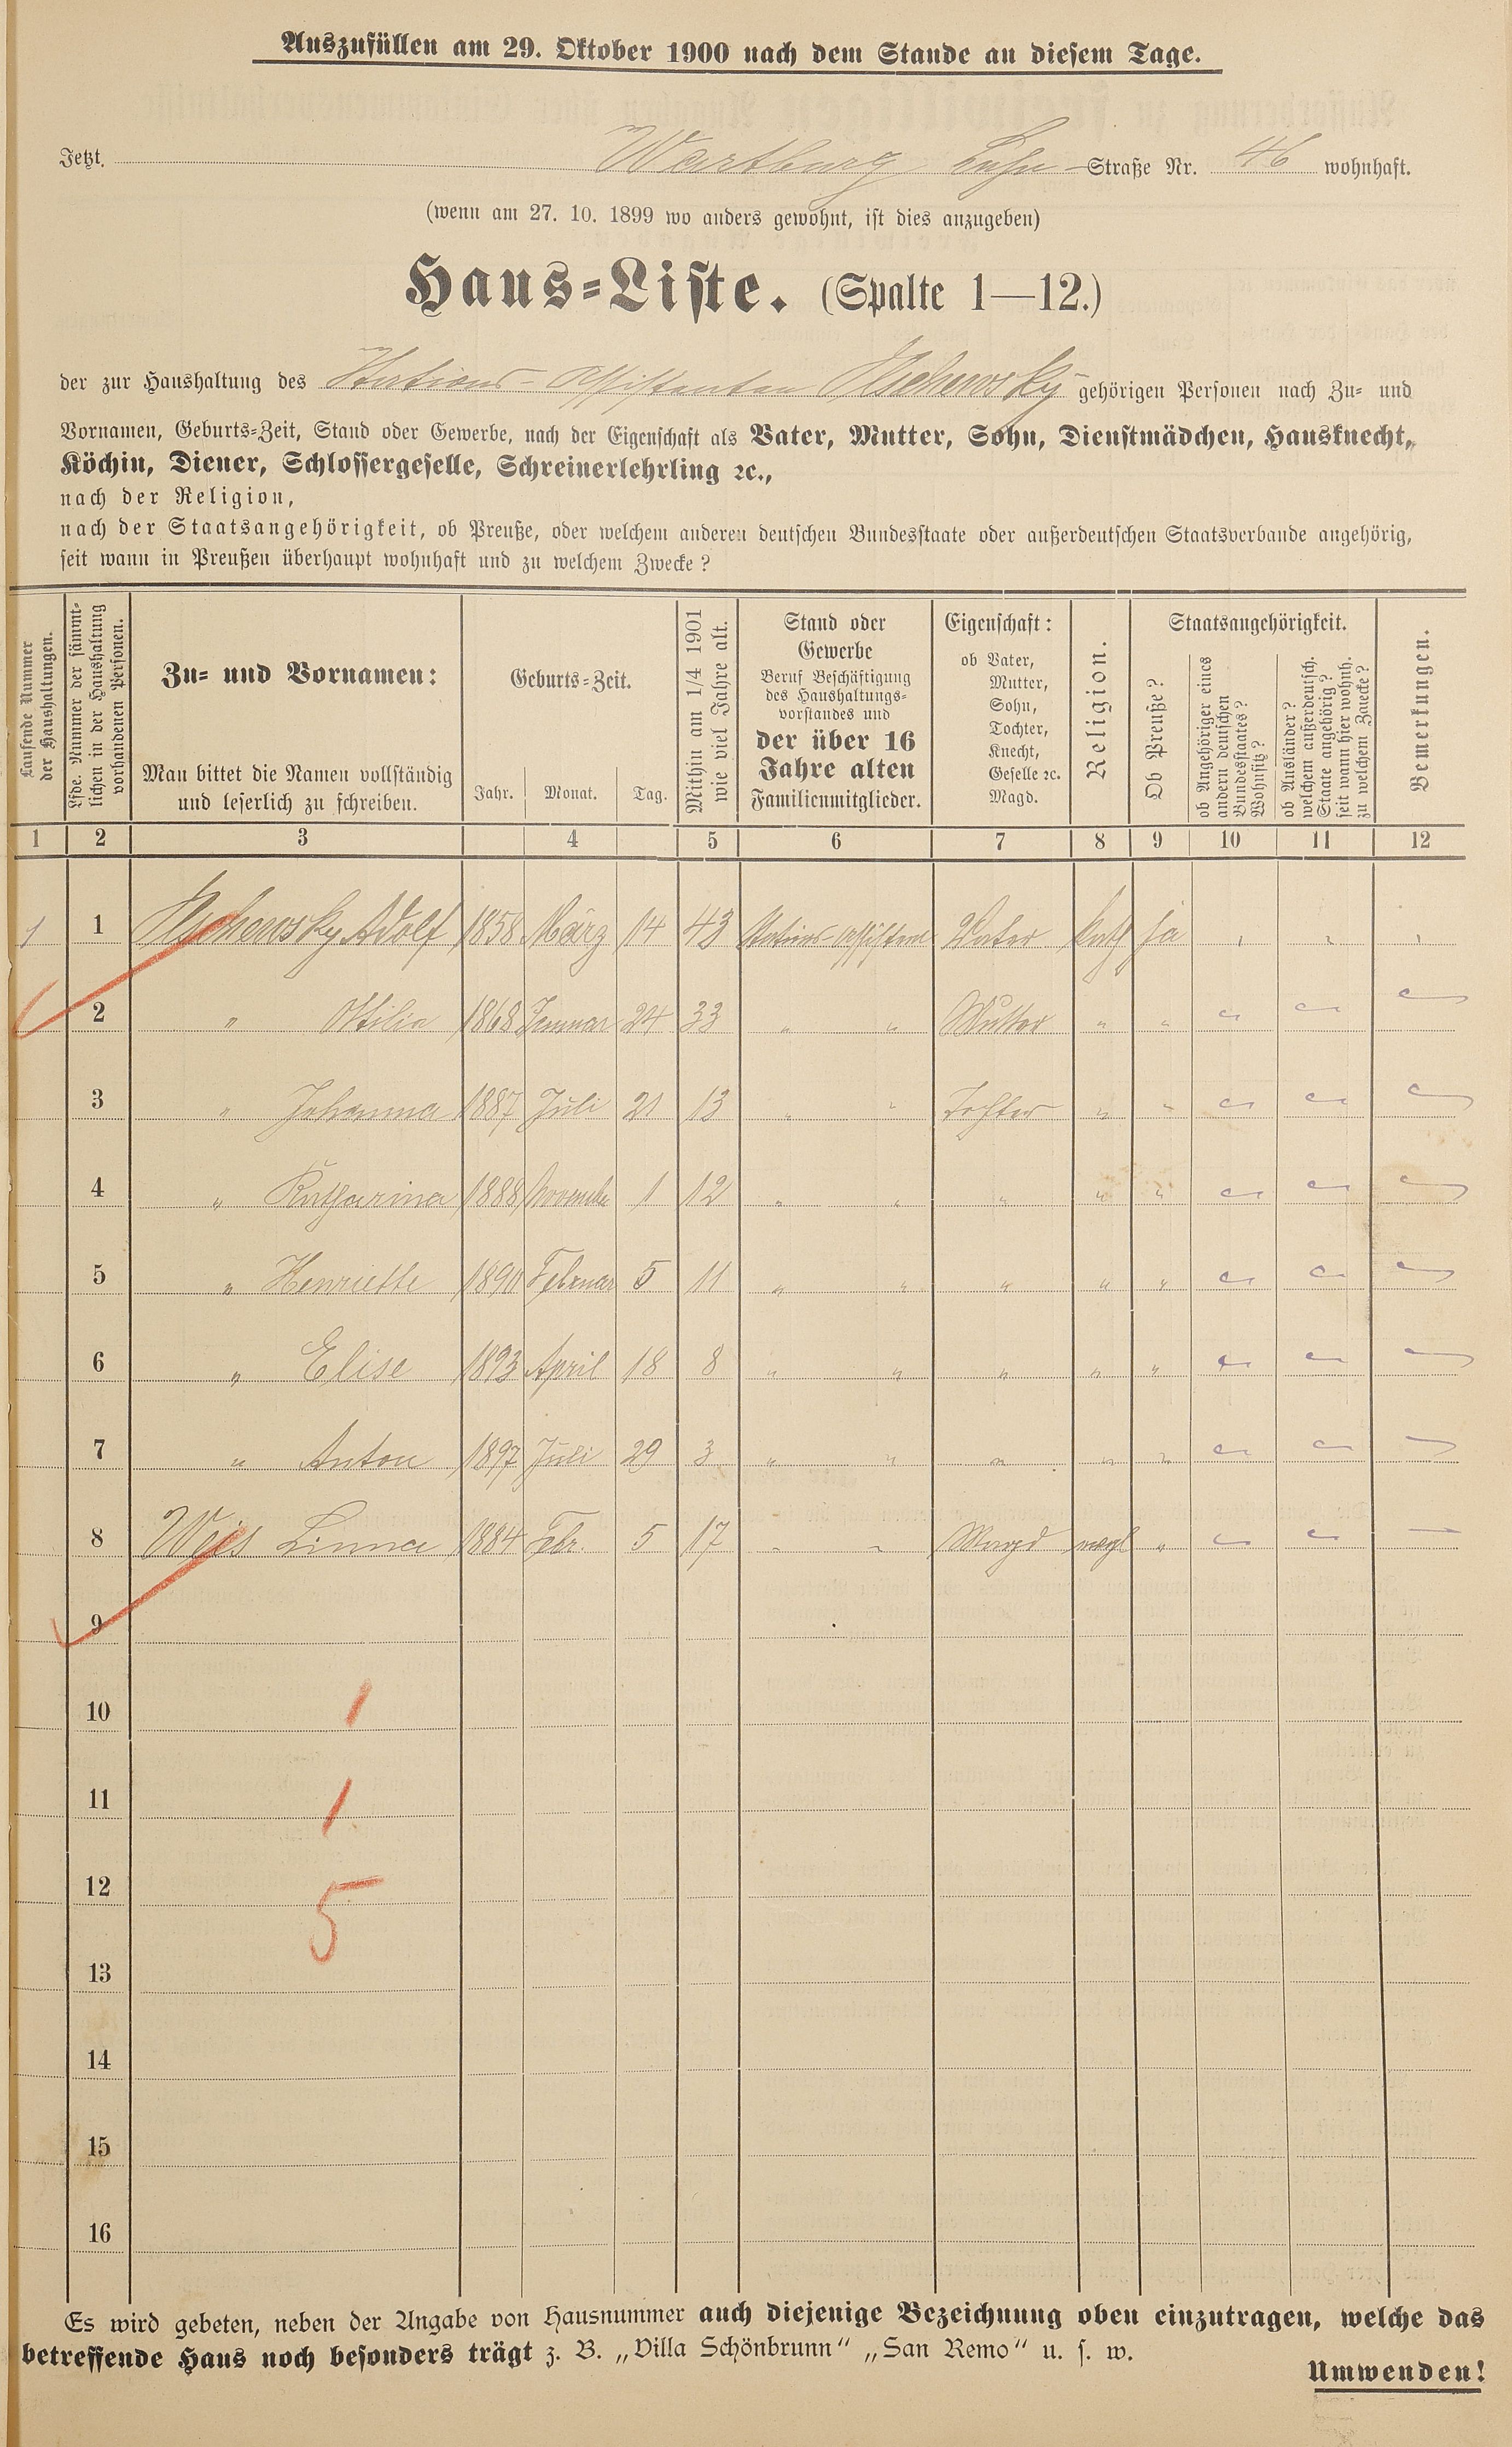 Auszufüllen am 29. Oktober 1900 nach dem Stande an diesem Tage.
Jetzt. Wartburg Lahn-Straße Nr. 46 wohnhaft.
(wenn am 27. 10. 1899 wo anders gewohnt, ist dies anzugeben)
Haus-Liste. (Spalte 1—12.)
der zur Haushaltung des Stations-Assistenten gehörigen Personen nach Zu- und
Vornamen, Geburts-Zeit, Stand oder Gewerbe, nach der Eigenschaft als Vater, Mutter, Sohn, Dienstmädchen, Hausknecht,
Köchin, Diener, Schlossergeselle, Schreinerlehrling ꝛc.,
nach der Religion,
nach der Staatsangehörigkeit, ob Preuße, oder welchem anderen deutschen Bundesstaate oder außerdeutschen Staatsverbande angehörig,
seit wann in Preußen überhaupt wohnhaft und zu welchem Zwecke?
Laufende Nummer der Haushaltungen.
Lfde. Nummer der sämmt-lichen in der Haushaltung vorhandenen Personen.
Zu- und Vornamen:
Man bittet die Namen vollständig
und leserlich zu schreiben.
Geburts-Zeit.
Jahr. Monat. Tag.
Mithin am 1/4 1901 wie viel Jahre alt.
Stand oder
Gewerbe
Beruf Beschäftigung
des Haushaltungs-
vorstandes und
der über 16
Jahre alten
Familienmitglieder.
Eigenschaft:
ob Vater,
Mutter,
Sohn,
Tochter,
Knecht,
Geselle ꝛc.
Magd.
Religion.
Staatsangehörigkeit.
Ob Preuße?
ob Angehöriger eines andern deutschen Bundesstaates? Wohnsitz?
ob Ausländer? welchem außerdeutsch. Staate angehörig? seit wann hier wohnh. zu welchem Zwecke?
Bemerkungen.
1 2 3 4 5 6 7 8 9 10 11 12
1 1 Adolf 1858 März 14 43 Stations-Assistent Vater kath ja
2 " Ottilia 1868 Januar 24 33 " " Mutter " "
3 " Johanna 1887 Juli 21 13 " " Tochter " "
4 " Katharina 1888 November 1 12 " " " " "
5 " Henriette 1890 Februar 5 11 " " " " "
6 " Elise 1893 April 18 8 " " " " "
7 " Anton 1897 Juli 29 3 " " " " "
8 Weis Linna 1884 Febr. 5 17 " " Magd "
9
10 1
11 1
12 5
13
14
15
16
Es wird gebeten, neben der Angabe von Hausnummer auch diejenige Bezeichnung oben einzutragen, welche das
betreffende Haus noch besonders trägt z. B. „Villa Schönbrunn" „San Remo" u. s. w.
Umwenden!